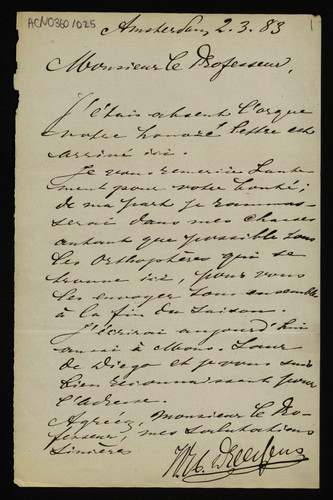 ACN0360/025
1
Amsterdam, 2.3.83
Monsieur le Professeur,
J'étais absent l'orque
votre honoré lettre est
arriné ici.
Je vous remercie
ment pour votre bonté;
de ma part je rammas-
serai dans mes chasses
autant que possible tous
les orthoptères qui se
trouve ici, pour vous
les envoyer tous ensemble
à la fin du saison.
J'écrirai aujourd'hui
aussi à Mons.
de Diego et je vous suis
bien reconnaissant pour
l'adresse.
Agréez, Monsieur le Pro-
fesseur, mes salutations
sinières